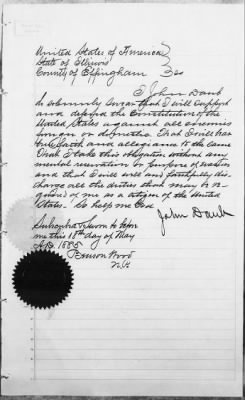 United States of America
State of Illinois
County of Effingham } ss
I John Daub
do solemnly swear that I will support
and defend the Constitution of the
United States against all enemies
foreign or domestic. That I will bear
true faith and allegiance to the same
That I take this obligation without any
mental reservation or purpose of evasion
and that I will well and faithfully dis-
charge all the duties that may be re-
quired of me as a citizen of the United
States. So help me God
John Daub
Subscribed & Sworn to before
me this 18th day of May
A.D. 1885
Benson Wood
N.P.